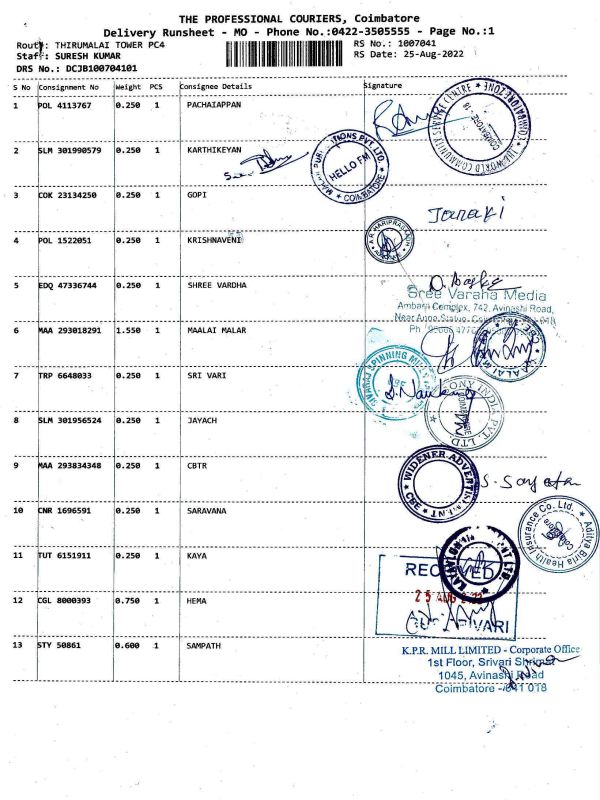 THE PROFESSIONAL COURIERS, Coimbatore
Delivery Runsheet - MO - Phone No.:0422-3505555 - Page No.:1
Route: THIRUMALAI TOWER PC4
RS No.: 1007041
Staff: SURESH KUMAR
RS Date: 25-Aug-2022
DRS No.: DCJB100704101
S No Consignment No Weight PCS Consignee Details Signature
1 POL 4113767 0.250 1 PACHAIAPPAN
THE WORLD COMMUNITY SERVICE CENTRE * COIMBATORE ZONE *
COIMBATORE - 18
2 SLM 301990579 0.250 1 KARTHIKEYAN
HELLO FM
* COIMBATORE *
3 COK 23134250 0.250 1 GOPI
Janaki
4 POL 1522051 0.250 1 KRISHNAVENI
5 EDQ 47336744 0.250 1 SHREE VARDHA
Sree Varaha Media
Ambara Complex, 742, Avinashi Road,
Near Anna Statue,
6 MAA 293018291 1.550 1 MAALAI MALAR
7 TRP 6648033 0.250 1 SRI VARI
SPINNING MILL
8 SLM 301956524 0.250 1 JAYACH
PVT. LTD.
9 MAA 293834348 0.250 1 CBTR
* WIDENER ADVERTISEMENT * CBE
10 CNR 1696591 0.250 1 SARAVANA
Aditya Birla Health Insurance Co. Ltd.
11 TUT 6151911 0.250 1 KAYA
RECEIVED
12 CGL 8000393 0.750 1 HEMA
25 AUG 2022
13 STY 50861 0.600 1 SAMPATH
K.P.R. MILL LIMITED - Corporate Office
1st Floor, Srivari Shrimat
1045, Avinashi Road
Coimbatore - 641 018